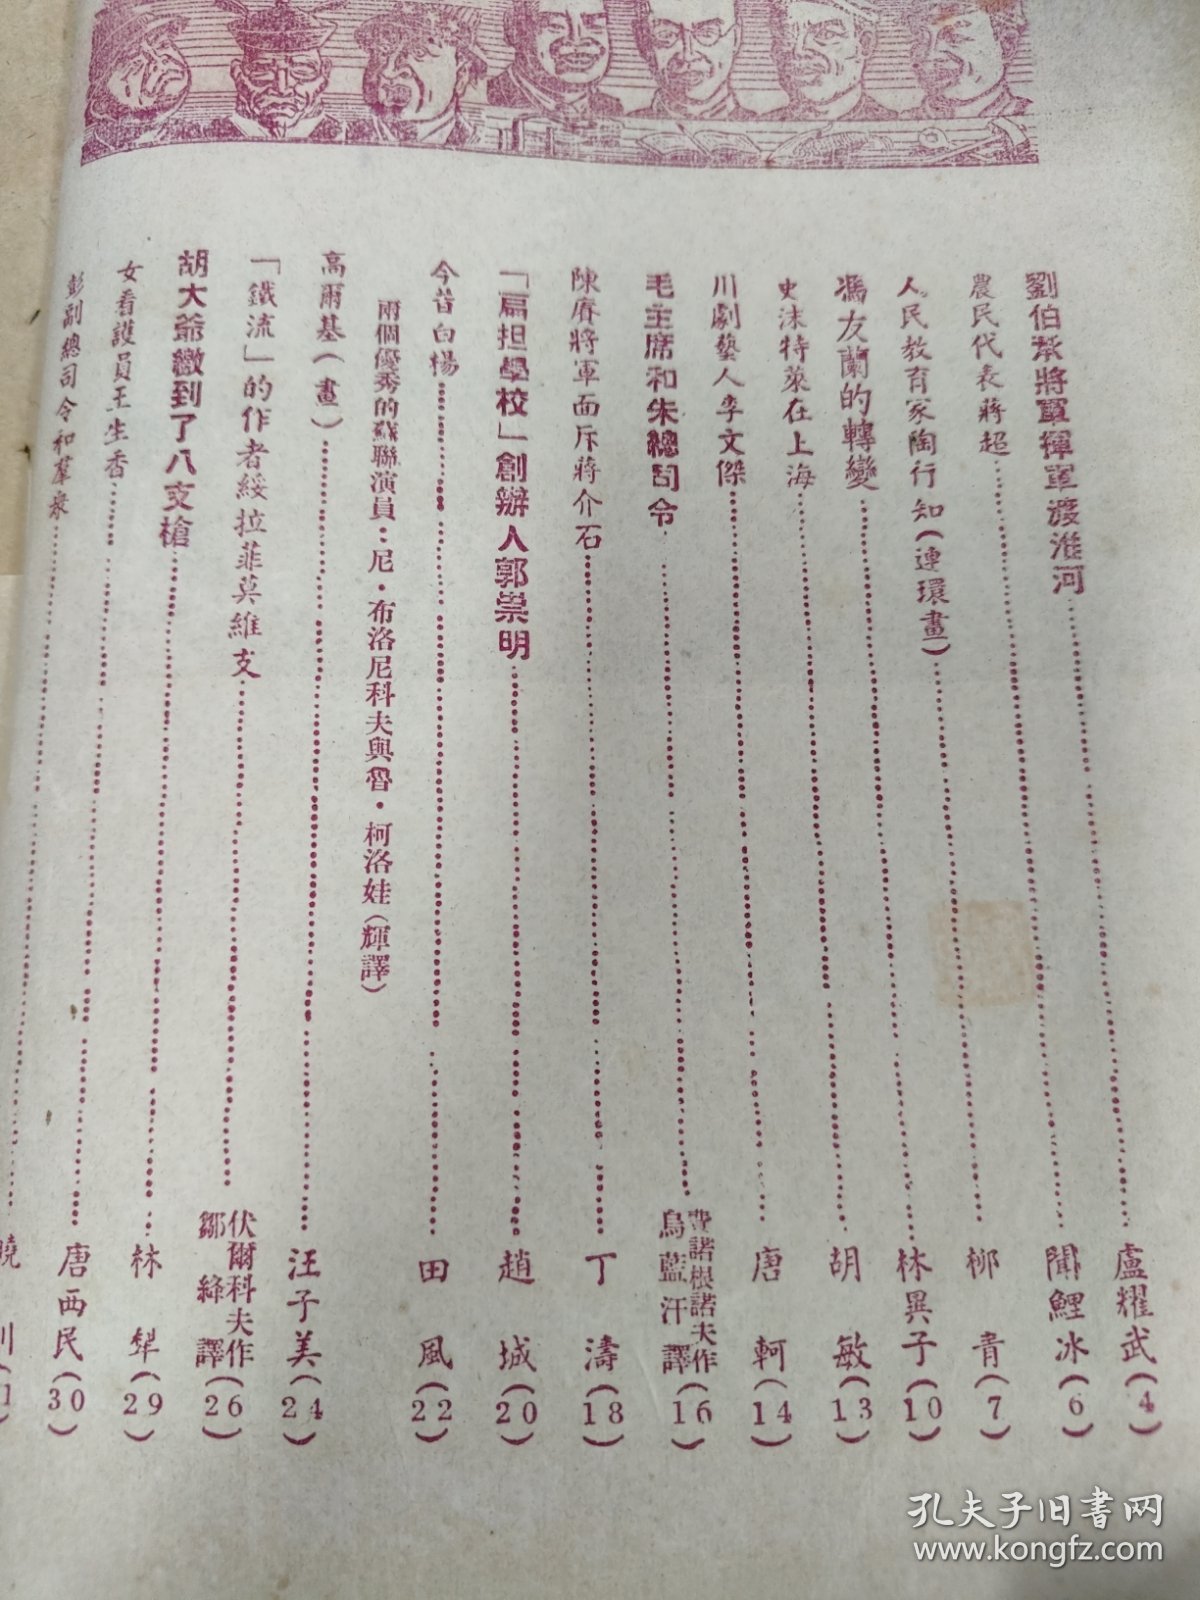 劉伯承將軍揮軍渡淮河……盧耀武(4)
農民代表蔣超……聞鯉冰(6)
人民教育家陶行知(連環畫)……柳青(7)
馮友蘭的轉變……林異子(10)
史沫特萊在上海……胡敏(13)
川劇藝人李文傑……唐軻(14)
毛主席和朱總司令……費諾根諾夫作 烏藍汗譯(16)
陳賡將軍面斥蔣介石……丁濤(18)
「扁担學校」創辦人郭崇明……趙城(20)
今昔白楊……田風(22)
兩個優秀的蘇聯演員：尼·布洛尼科夫與魯·柯洛娃(輝譯)
高爾基(畫)……汪子美(24)
「鐵流」的作者綏拉菲莫維支……伏爾科夫作 鄒絳譯(26)
胡大爺繳到了八支槍……林犂(29)
女看護員王生香……唐西民(30)
彭副總司令和羣衆……曉
孔夫子旧书网
www.kongfz.com